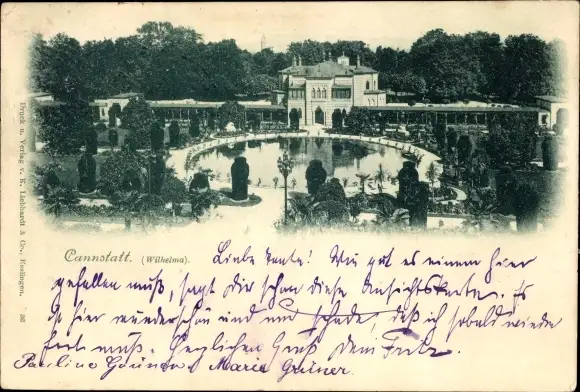 Druck u. Verlag v. K. Liebhardt & Co., Esslingen. 36
Cannstatt. (Wilhelma).
Liebe Tante! Wie gut es einem hier
gefallen muß, sagt Dir schon diese Ansichtskarten. Es
ist hier wunderschön und nur schade, daß ich sobald wieder
fort muß. Herzlichen Gruß Dein Fritz.
Pauline Marie Grüner.